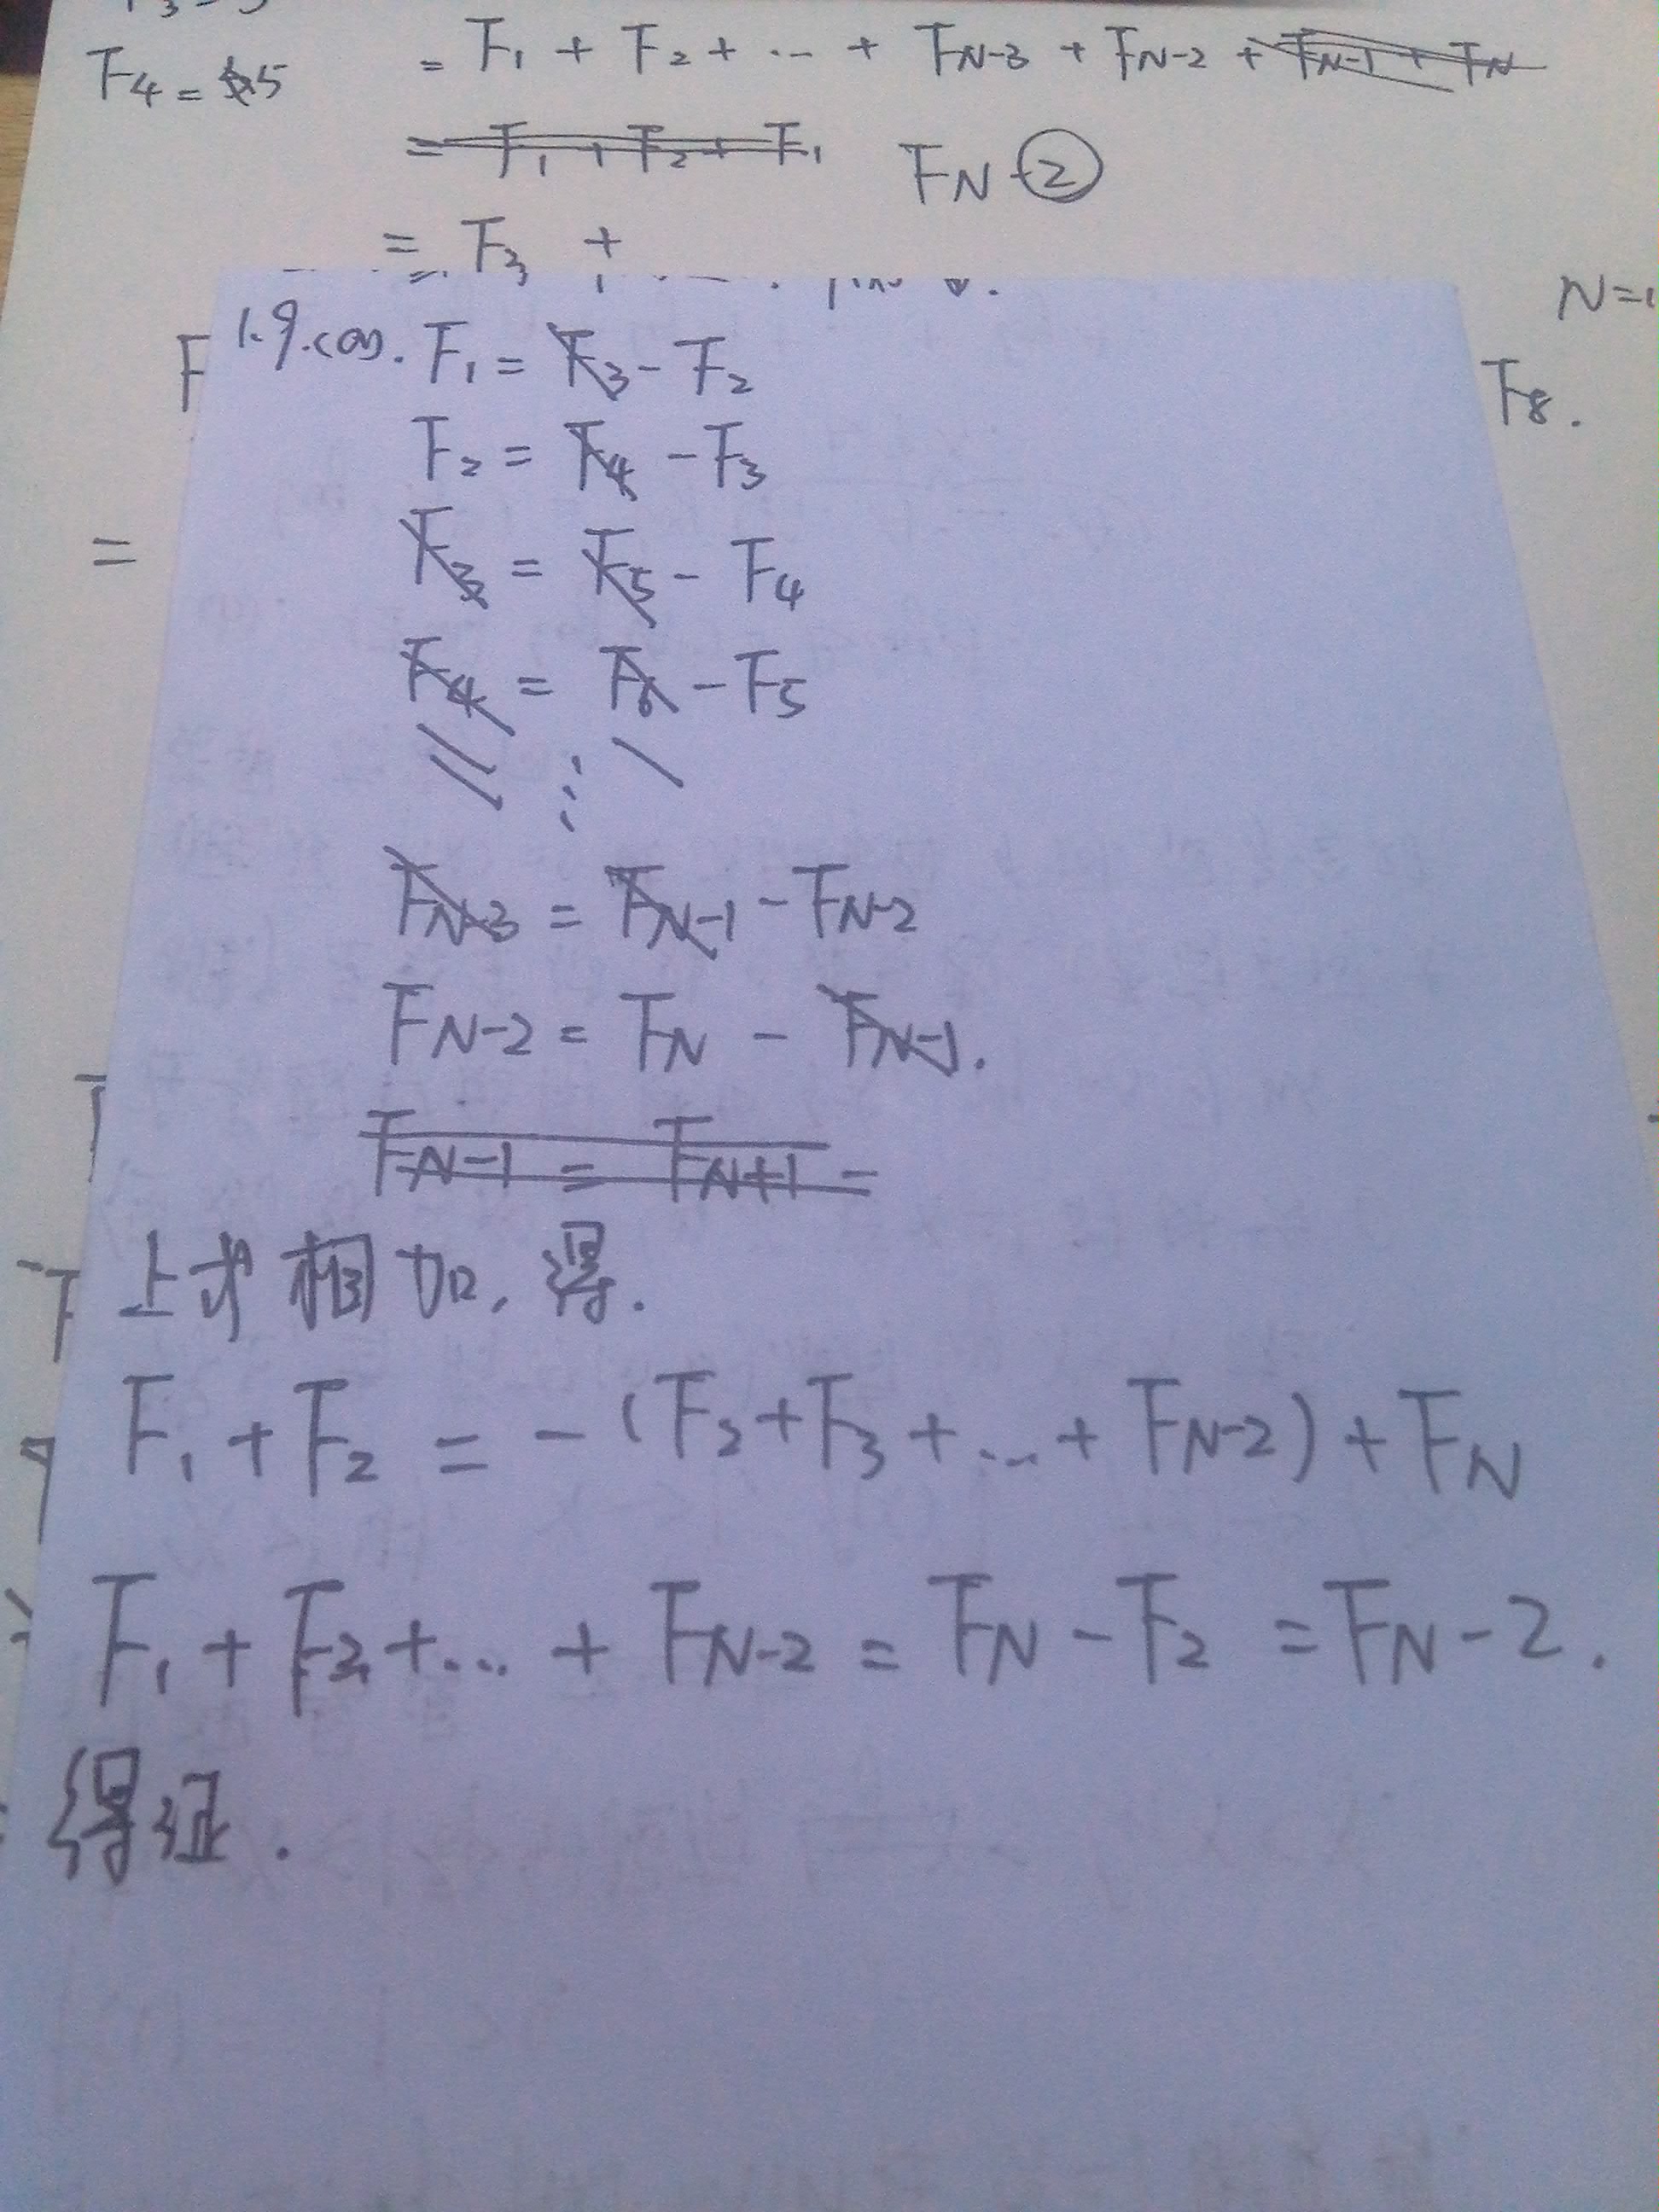 F4 = 5
= F1 + F2 + ... + FN-3 + FN-2 + FN-1 + FN
= F1 + F2 + F1
FN-2
= F3 +
N=1
1.9.(a). F1 = F3 - F2
F
F8.
F2 = F4 - F3
=
F3 = F5 - F4
F4 = F6 - F5
⋮
FN-3 = FN-1 - FN-2
FN-2 = FN - FN-1.
FN-1 = FN+1 -
上式相加,得.
F1 + F2 = -(F2+F3+...+FN-2)+FN
F1 + F2 +... + FN-2 = FN - F2 = FN-2.
得证.